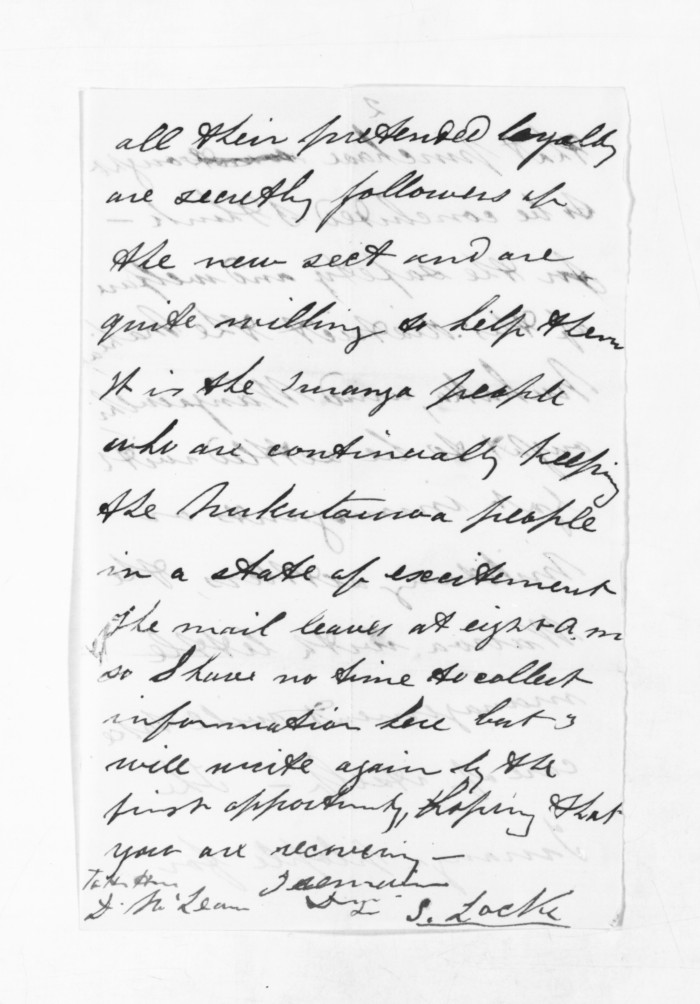 all their pretended loyalty
are secretly followers of
the new sect and are
quite willing to help them
It is the Imanga people
who are continually keeping
the Nukutauroa people
in a state of excitement
The mail leaves at eight a.m
so I have no time to collect
information here but I
will write again by the
first opportunity, hoping that
you are recovering —
I remain
To His Hon
D. McLean
S. Locke